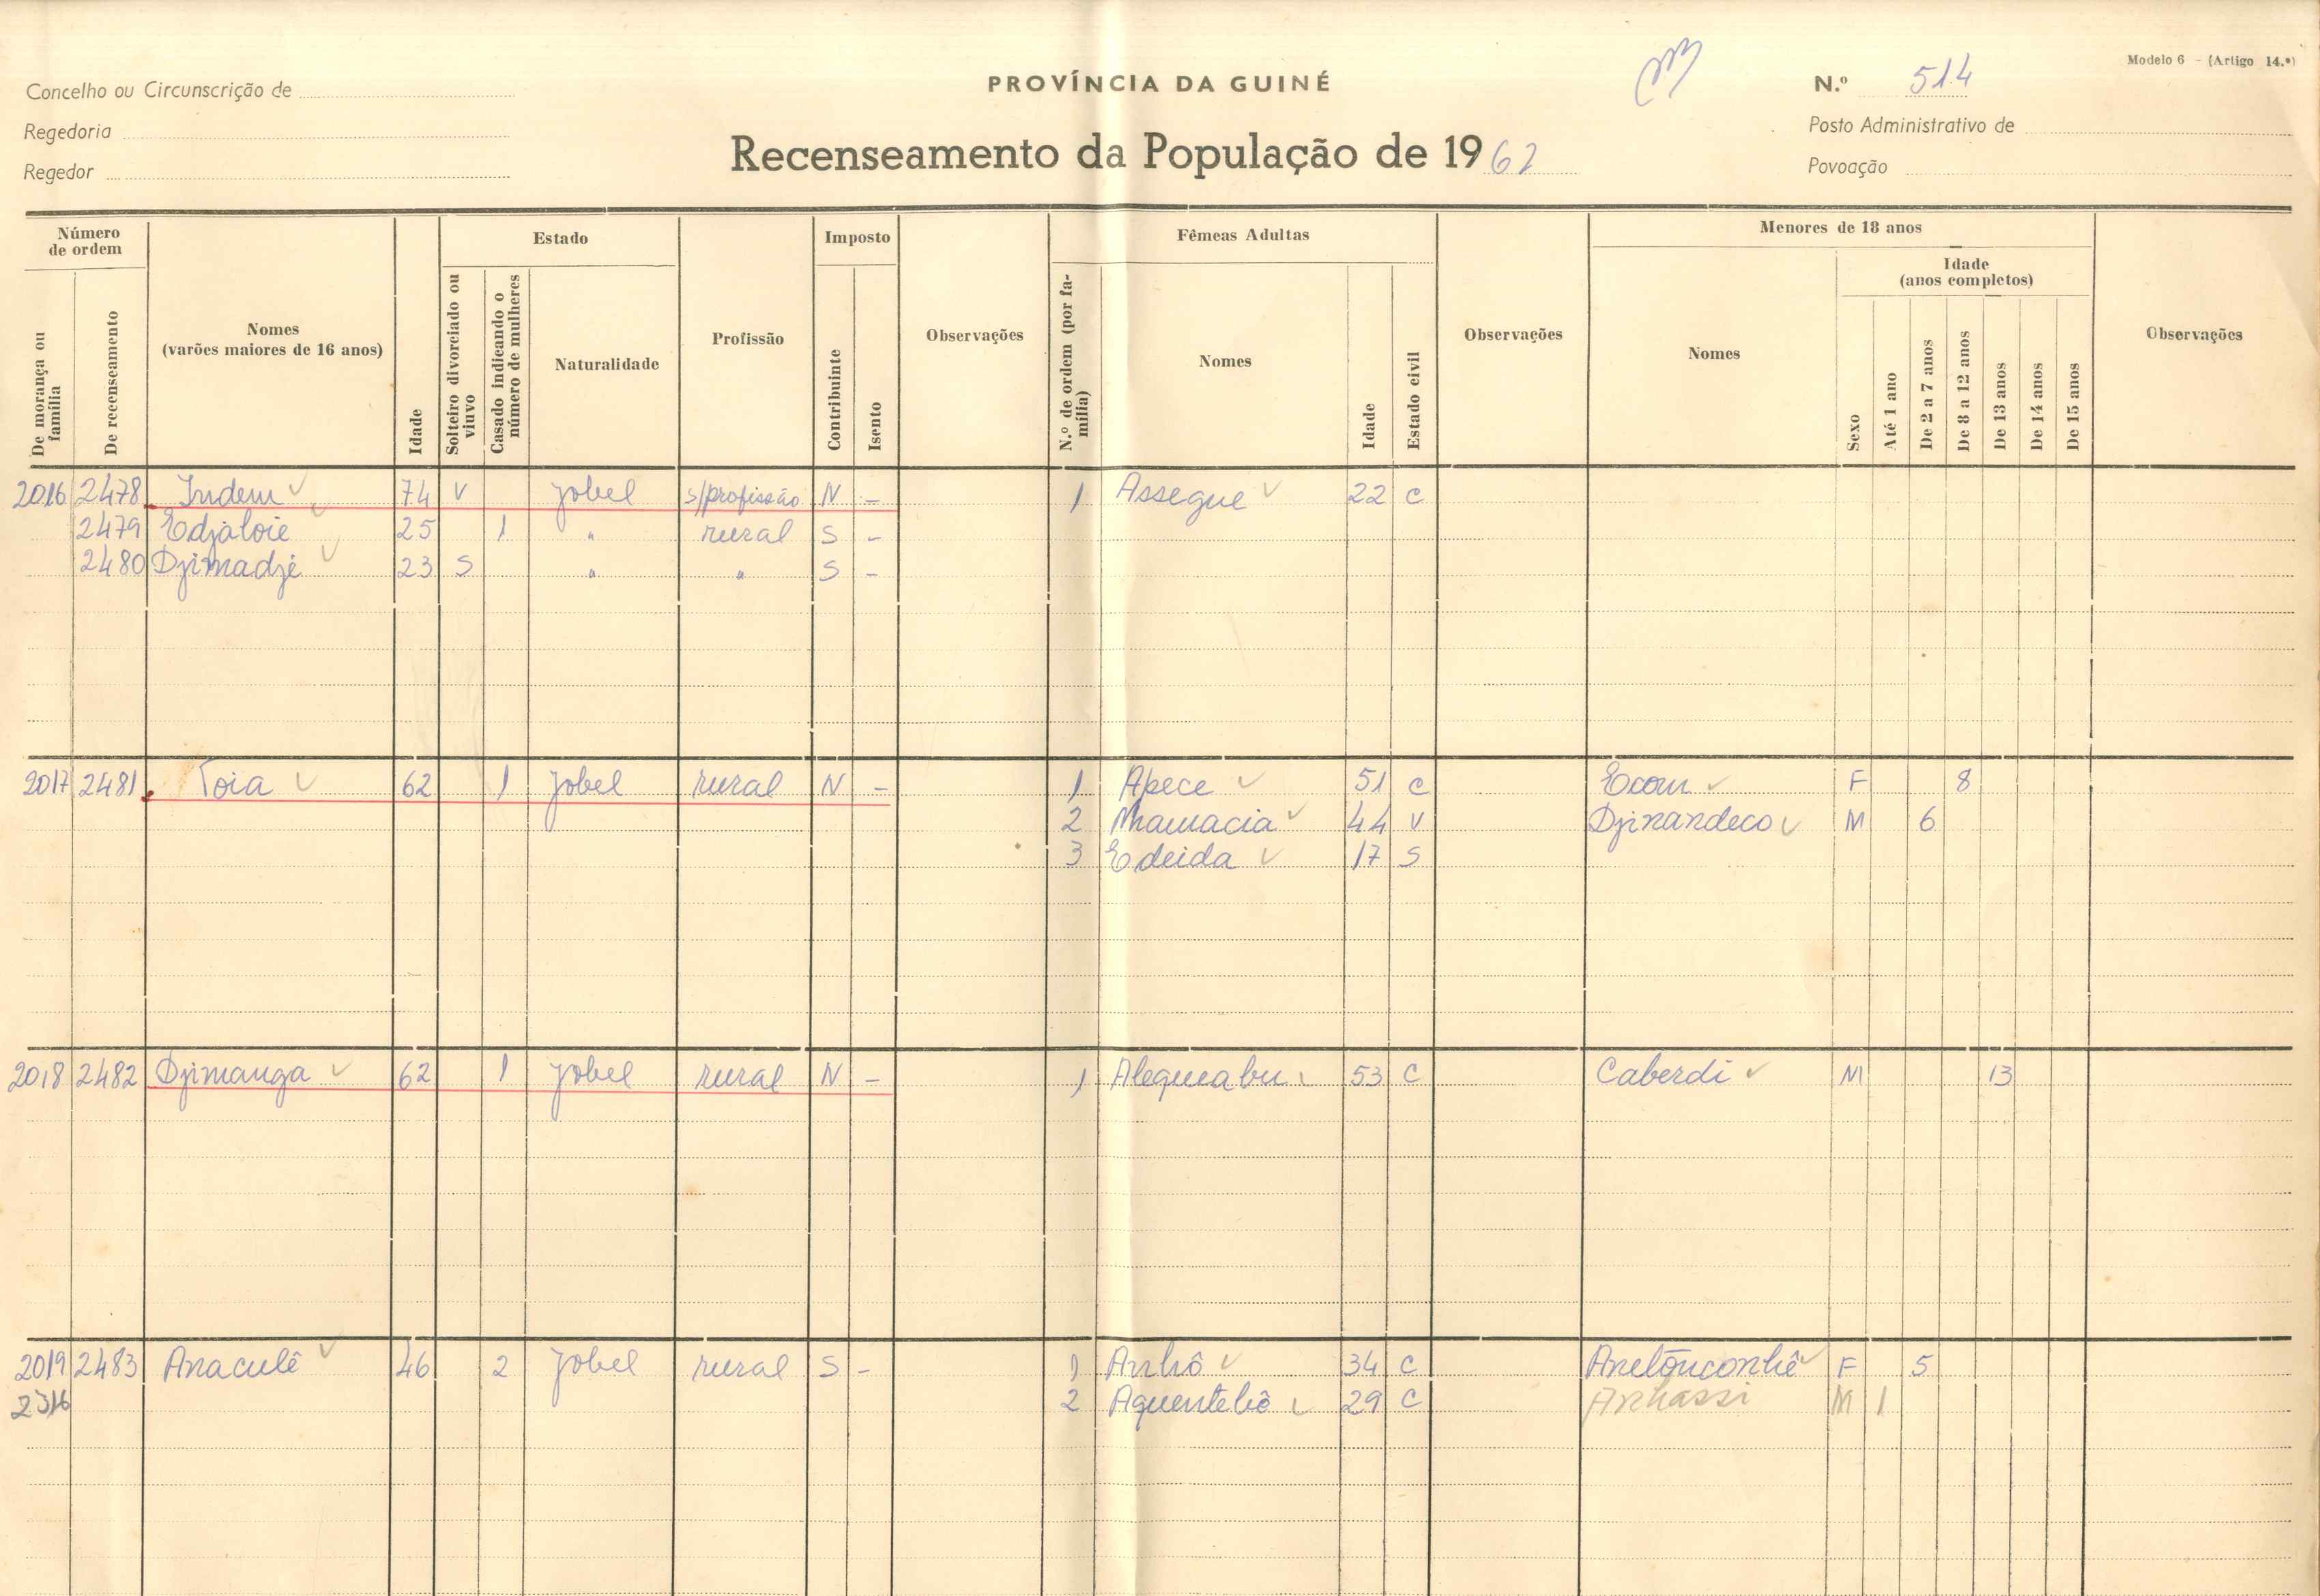 Modelo 6 - (Artigo 14.º)
Concelho ou Circunscrição de
PROVÍNCIA DA GUINÉ
N.º 514
Regedoria
Posto Administrativo de
Regedor
Recenseamento da População de 1962
Povoação
Número de ordem
De morança ou família
De recenseamento
Nomes
(varões maiores de 16 anos)
Idade
Estado
Solteiro divorciado ou viuvo
Casado indicando o número de mulheres
Naturalidade
Profissão
Imposto
Contribuinte
Isento
Observações
Fêmeas Adultas
N.º de ordem (por família)
Nomes
Idade
Estado civil
Observações
Menores de 18 anos
Nomes
Idade
(anos completos)
Sexo
Até 1 ano
De 2 a 7 anos
De 8 a 12 anos
De 13 anos
De 14 anos
De 15 anos
Observações
2016 2478 Indem 74 V Jobel s/profissão N - 1 Assegue 22 C
2479 Edjaloie 25 1 " rural S -
2480 Djimadjé 23 S " " S -
2017 2481 Toia 62 1 Jobel rural N - 1 Apece 51 C Ecom F 8
2 Nhamacia 44 V Djinandeco M 6
3 Edeida 17 S
2018 2482 Djimanga 62 1 Jobel rural N - 1 Alegueabu 53 C Caberdi M 13
2019 2483 Anaculê 46 2 Jobel rural S - 1 Anhô 34 C Anetônconhê F 5
2316 2 Aquentebô 29 C Anhassi M 1